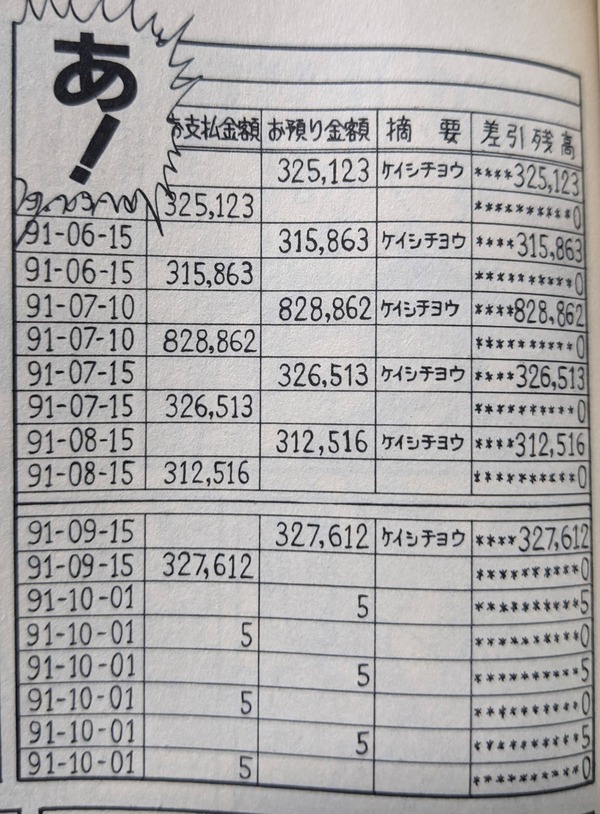 あ!
お支払金額 お預り金額 摘要 差引残高
325,123 ケイシチョウ ****325,123
325,123 **********0
91-06-15 315,863 ケイシチョウ ****315,863
91-06-15 315,863 **********0
91-07-10 828,862 ケイシチョウ ****828,862
91-07-10 828,862 **********0
91-07-15 326,513 ケイシチョウ ****326,513
91-07-15 326,513 **********0
91-08-15 312,516 ケイシチョウ ****312,516
91-08-15 312,516 **********0
91-09-15 327,612 ケイシチョウ ****327,612
91-09-15 327,612 **********0
91-10-01 5 **********5
91-10-01 5 **********0
91-10-01 5 **********5
91-10-01 5 **********0
91-10-01 5 **********5
91-10-01 5 **********0